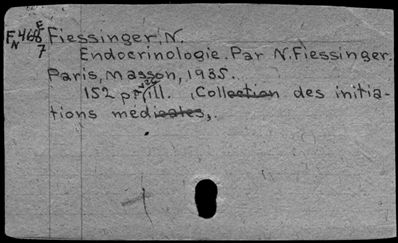 FN468E Fiessinger, N.
7 Endocrinologie. Par N. Fiessinger.
Paris, Masson, 1935.
152 p. ill. (Collection des initia-
tions médicales,